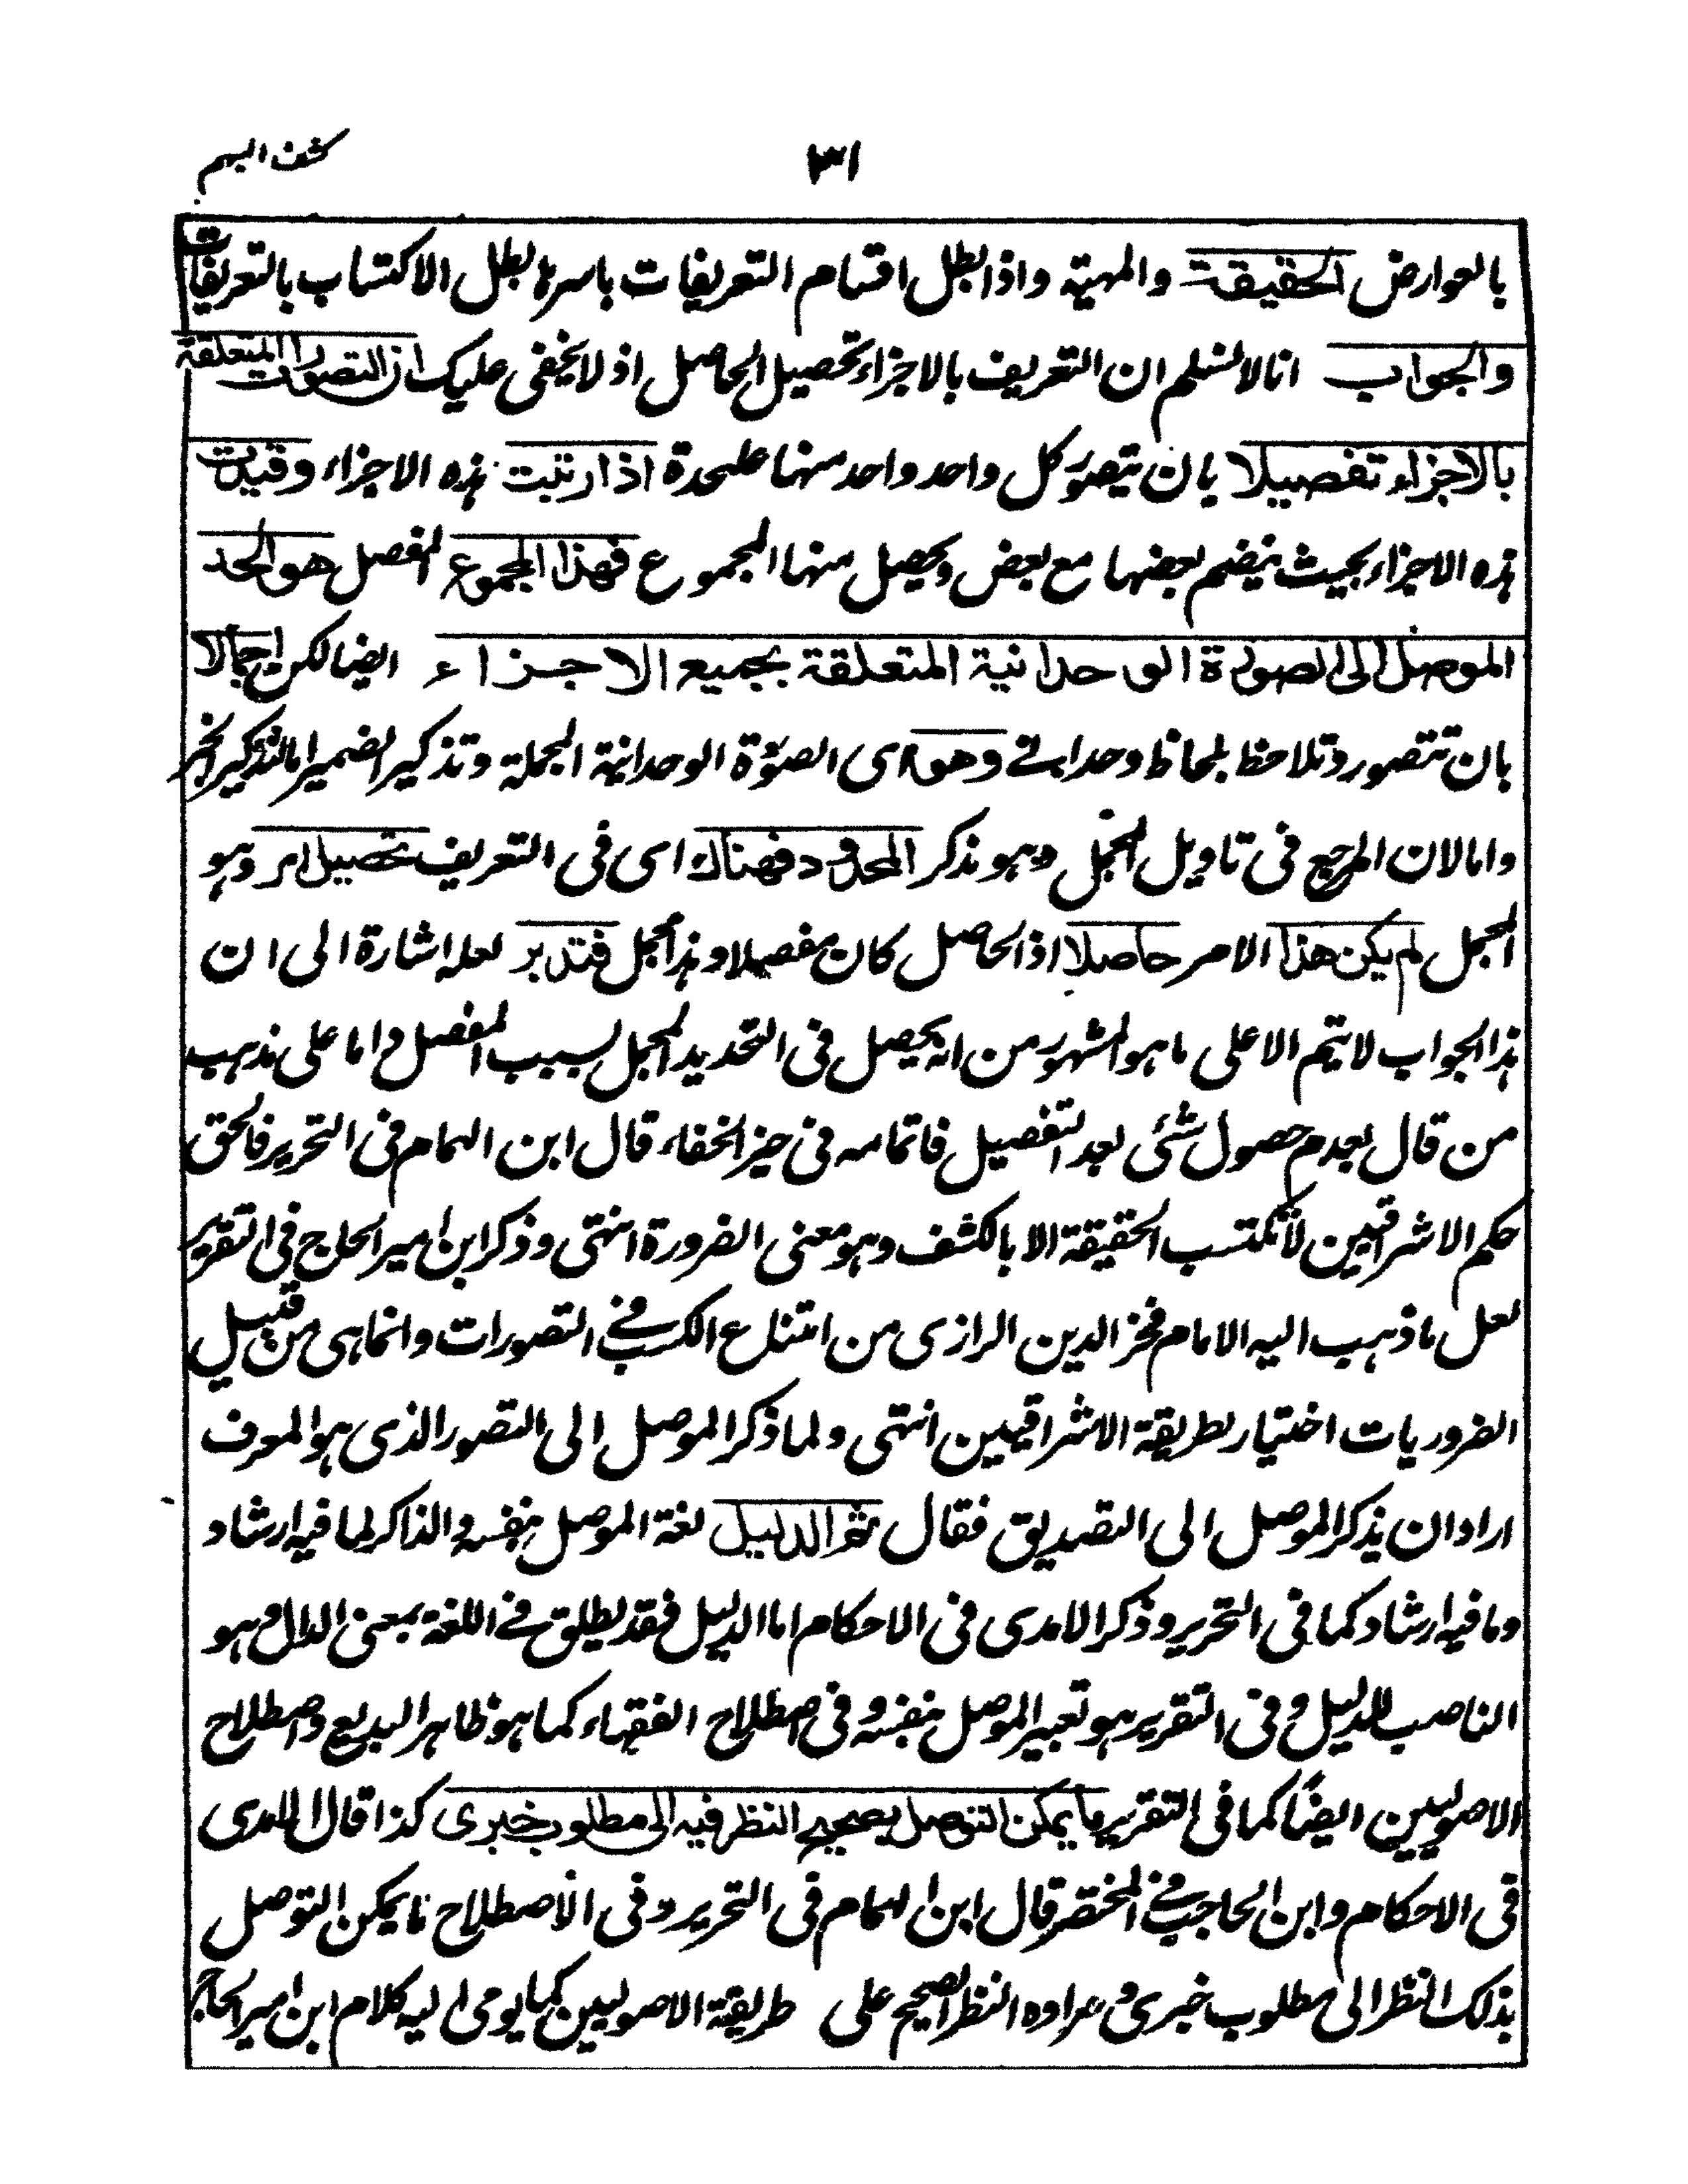 كشف المبهم
٣١
بالعوارض الحقيقة والمهية واذا بطل اقسام التعريفات باسرها بطل الاكتساب بالتعريفات
والجواب انا لا نسلم ان التعريف بالاجزاء تحصيل الحاصل اذ لا يخفى عليك ان التصورات المتعلقة
بالاجزاء تفصيلا بان يتصور كل واحد واحد منها عليحدة اذا رتبت هذه الاجزاء وقيدت
هذه الاجزاء بحيث ينضم بعضها مع بعض ويحصل منها المجموع فهذا المجموع المفصل هو الحد
الموصل الى الصورة الوحدانية المتعلقة بجميع الاجزاء ايضا لكن اجمالا
بان تتصور وتلاحظ بلحاظ وحدانى وهو اى الصورة الوحدانية المجملة وتذكير الضمير اما لتذكير الخبر
واما لان المرجع فى تاويل المجمل وهو مذكر المحدود فهناك اى فى التعريف تحصيل امر وهو
المجمل لم يكن هذا الامر حاصلا اذ الحاصل كان مفصلا وهذا مجمل فتدبر لعله اشارة الى ان
هذا الجواب لا يتم الا على ما هو المشهور من انه يحصل فى التحديد المجمل بسبب المفصل واما على مذهب
من قال بعدم حصول شئى بعد التفصيل فاتمامه فى حيز الخفاء قال ابن الهمام فى التحرير فالحق
حكم الاشراقيين لا تكتسب الحقيقة الا بالكشف وهو معنى الضرورة انتهى وذكر ابن امير الحاج فى التقرير
لعل ما ذهب اليه الامام فخر الدين الرازى من امتناع الكسب فى التصورات وانما هى من قبيل
الضروريات اختيار لطريقة الاشراقيين انتهى ولما ذكر الموصل الى التصور الذى هو المعرف
اراد ان يذكر الموصل الى التصديق فقال ثم الدليل لغة الموصل بنفسه والذاكر لما فيه ارشاد
وما فيه ارشاد كما فى التحرير وذكر الامدى فى الاحكام اما الدليل فقد يطلق فى اللغة بمعنى الدال وهو
الناصب للدليل وفى التقرير هو تعبير الموصل بنفسه وفى اصطلاح الفقهاء كما هو ظاهر البديع واصطلاح
الاصوليين ايضًا كما فى التقرير ما يمكن التوصل بصحيح النظر فيه الى مطلوب خبرى كذا قال الامدى
فى الاحكام وابن الحاجب فى المختصر قال ابن الهمام فى التحرير وفى الاصطلاح ما يمكن التوصل
بذلك النظر الى مطلوب خبرى ومراده النظر الصحيح على طريقة الاصوليين كما يومى اليه كلام ابن امير الحاج